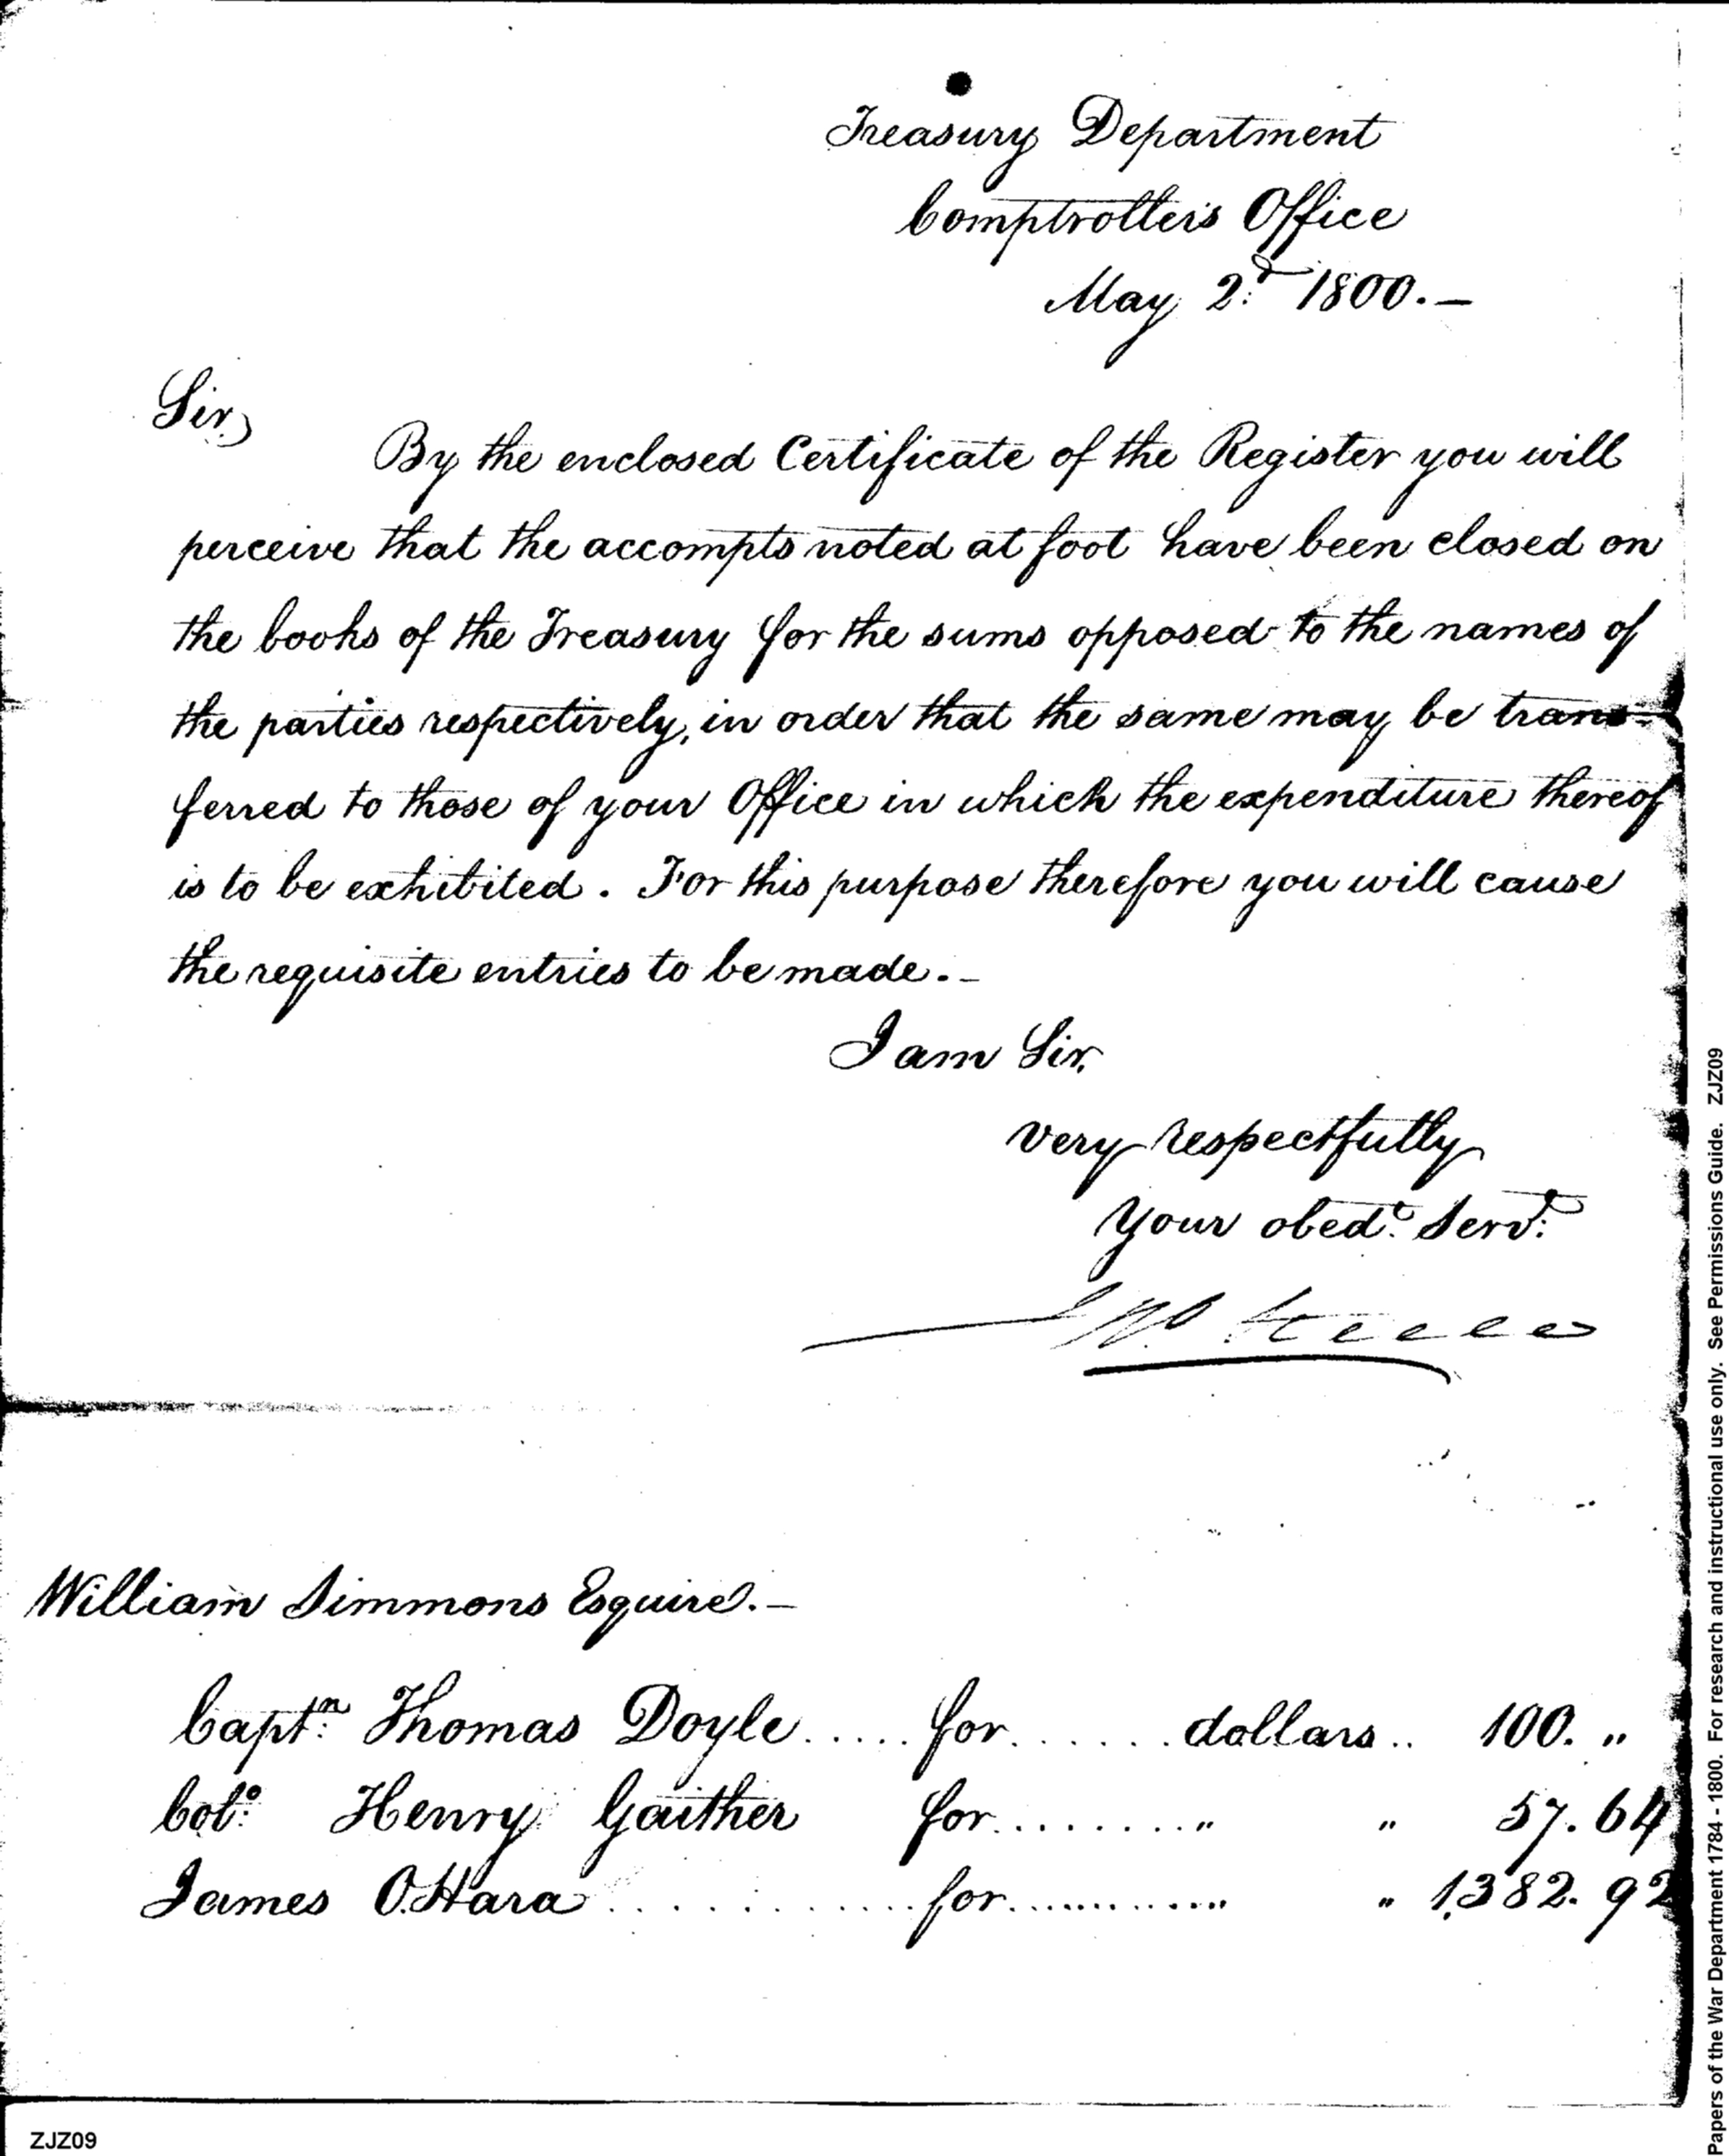 Treasury Department
Comptroller's Office
May 2.d 1800.—
Sir,
By the enclosed Certificate of the Register you will
perceive that the accompts noted at foot have been closed on
the books of the Treasury for the sums opposed to the names of
the parties respectively, in order that the same may be trans-
ferred to those of your Office in which the expenditure thereof
is to be exhibited. For this purpose therefore you will cause
the requisite entries to be made.—
I am Sir,
very respectfully
Your obed.t Serv.t
Jno. Steele
William Simmons Esquire.—
Capt.n Thomas Doyle..... for....... dollars.. 100. "
Col.o Henry Gaither for........ " " 57.64
James O.Hara ............ for............ " 1,382.92
ZJZ09
Papers of the War Department 1784 - 1800. For research and instructional use only. See Permissions Guide. ZJZ09